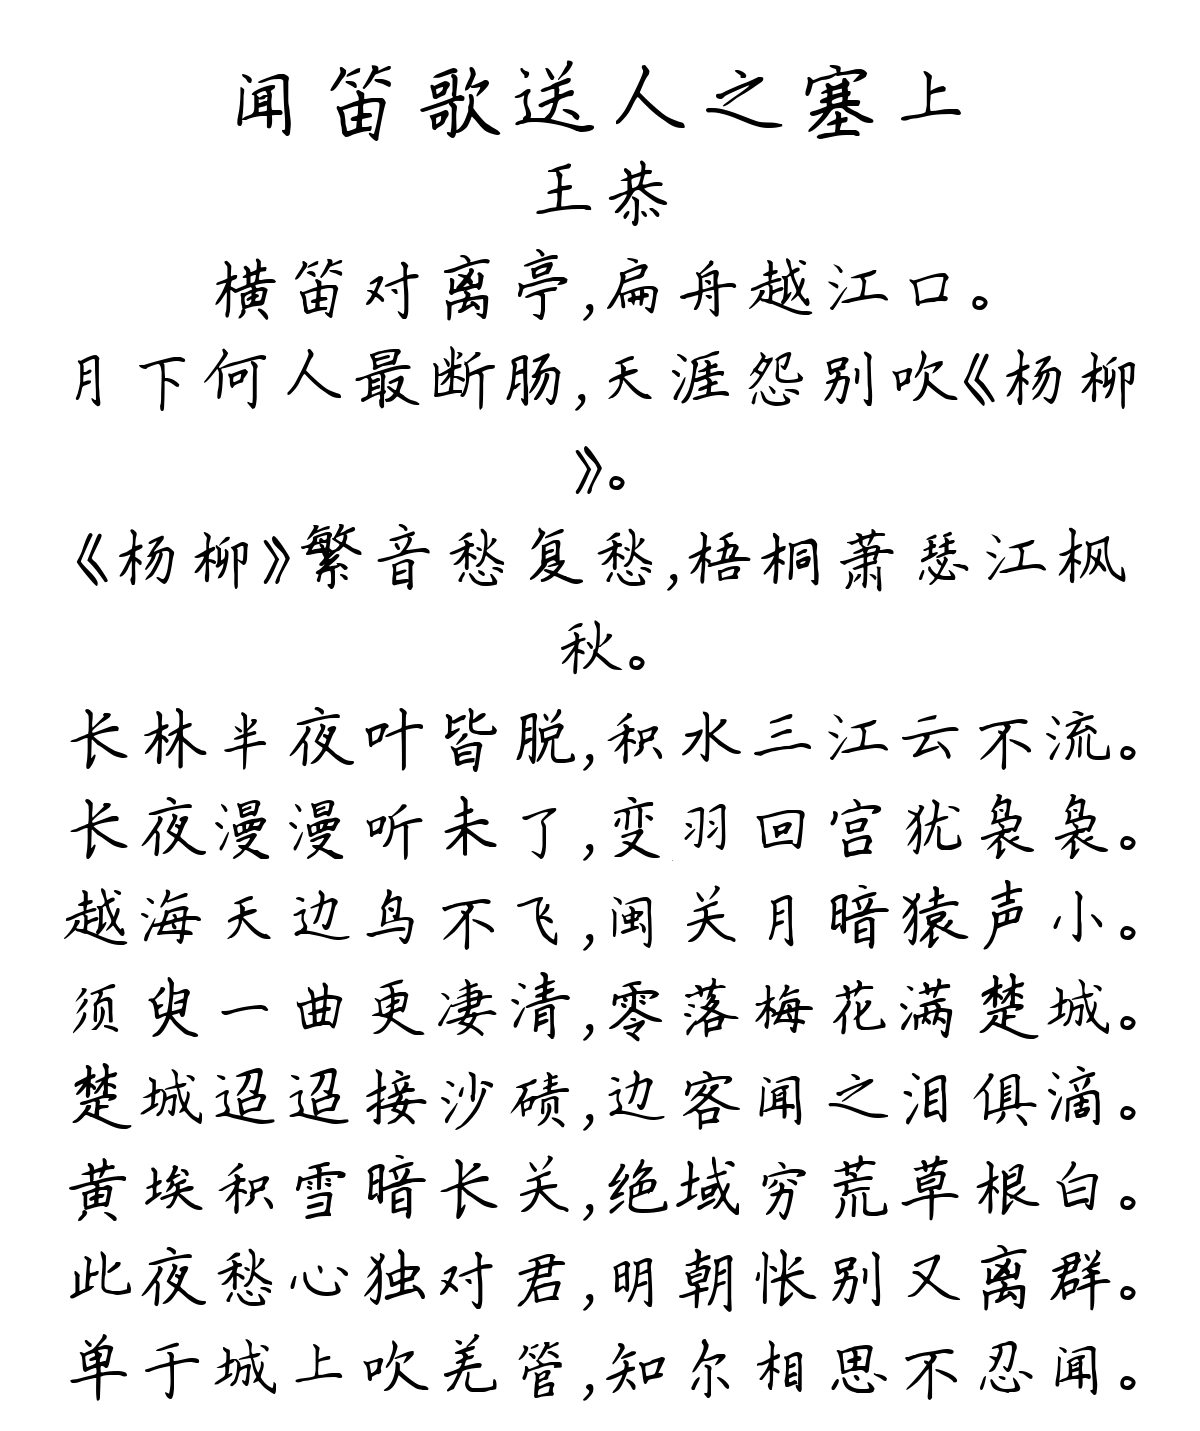 闻笛歌送人之塞上
王恭
横笛对离亭,扁舟越江口。
月下何人最断肠,天涯怨别吹《杨柳
》。
《杨柳》繁音愁复愁,梧桐萧瑟江枫
秋。
长林半夜叶皆脱,积水三江云不流。
长夜漫漫听未了,变羽回宫犹袅袅。
越海天边鸟不飞,闽关月暗猿声小。
须臾一曲更凄清,零落梅花满楚城。
楚城迢迢接沙碛,边客闻之泪俱滴。
黄埃积雪暗长关,绝域穷荒草根白。
此夜愁心独对君,明朝怅别又离群。
单于城上吹羌管,知尔相思不忍闻。